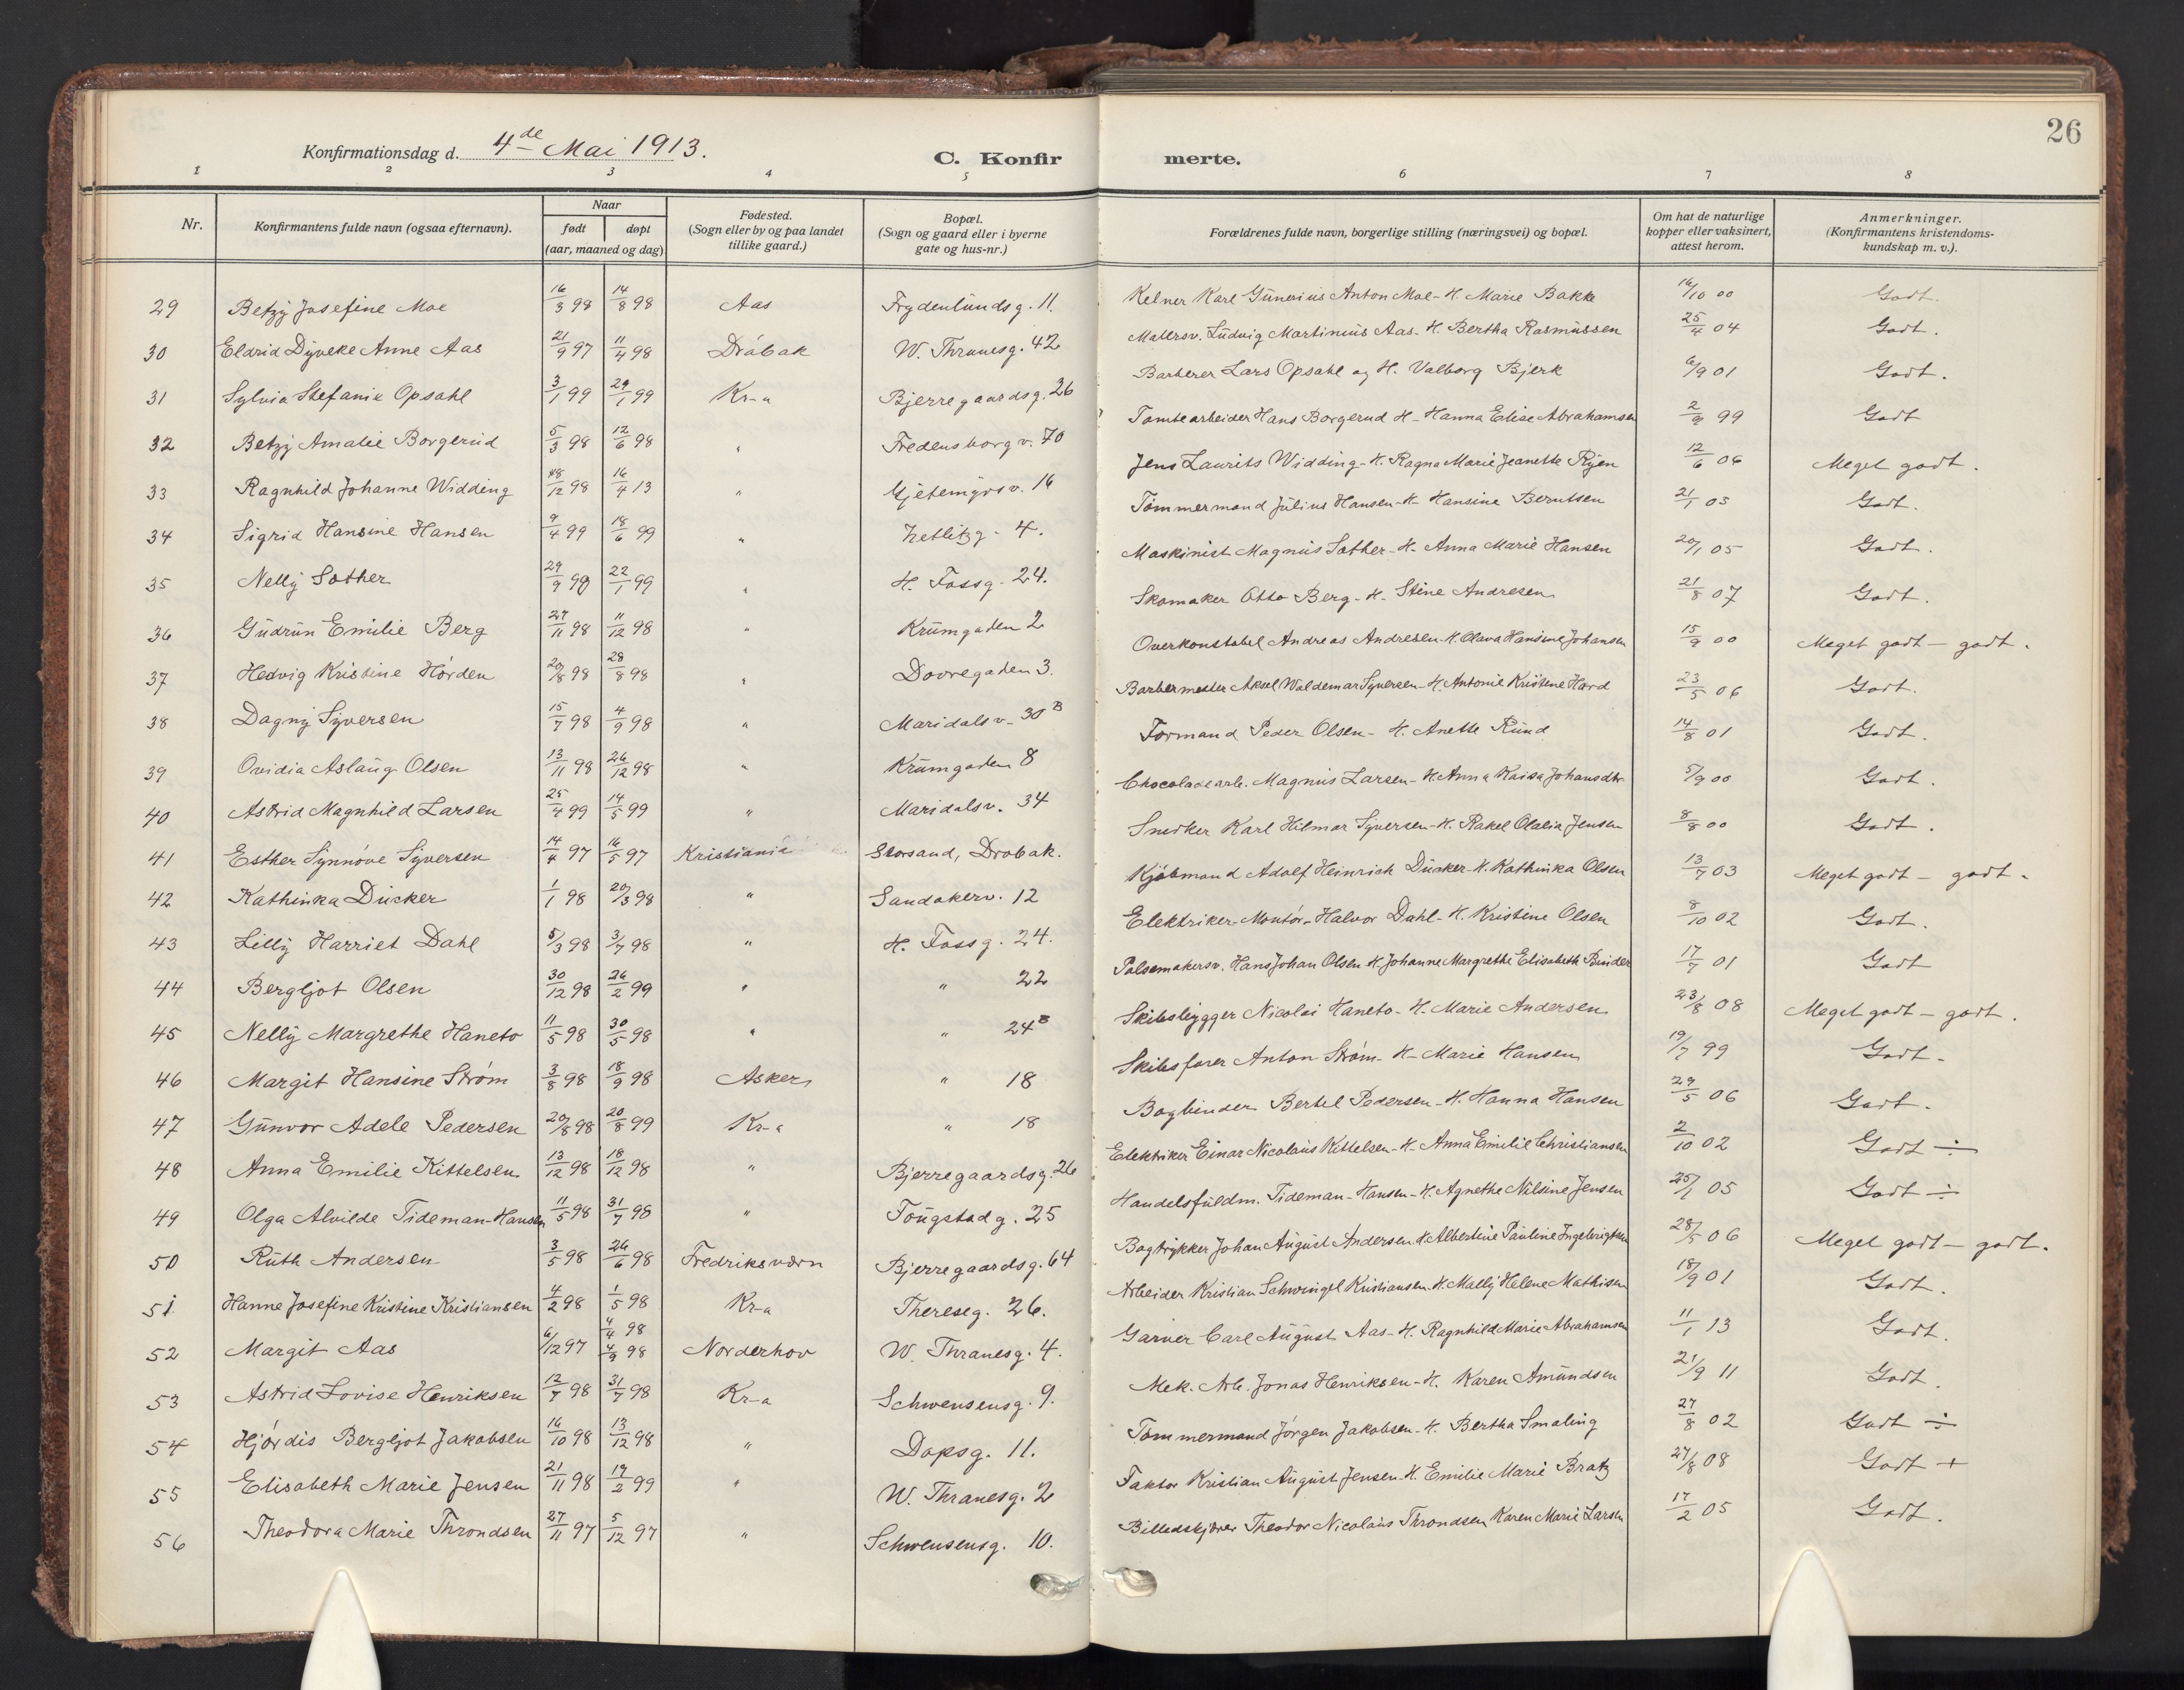 26
Konfirmationsdag d. 4de Mai 1913.
C. Konfirmerte.
1 2 3 4 5 6 7 8
Nr. Konfirmantens fulde navn (ogsaa efternavn). Naar født døpt (aar, maaned og dag) Fødested. (Sogn eller by og paa landet tillike gaard.) Bopæl. (Sogn og gaard eller i byerne gate og hus-nr.) Forældrenes fulde navn, borgerlige stilling (næringsvei) og bopæl. Om hat de naturlige kopper eller vaksinert, attest herom. Anmerkninger. (Konfirmantens kristendoms-kundskap m. v.).
29 Betzy Josefine Moe 16/3 98 14/8 98 Aas Frydenlundsg. 11. Kelner Karl Gunerius Anton Moe - H. Marie Bakke 16/10 00 Godt.
30 Eldrid Dyveke Anne Aas 21/9 97 11/4 98 Dröbak W. Thranesg. 42 Malersv. Ludvig Martinius Aas - H. Bertha Rasmussen 25/4 04 Godt.
31 Sylvia Stefanie Opsahl 3/1 99 29/1 99 Kr-a Bjerregaardsg. 26 Barberer Lars Opsahl og H. Valborg Bjerk 6/9 01 Godt.
32 Betzy Amalie Borgerud 5/3 98 12/6 98 " Fredensborgv. 70 Tomtearbeider Hans Borgerud H - Hanna Elise Abrahamsen 2/9 99 Godt
33 Ragnhild Johanne Widding /12 98 16/4 13 " Gjetemyrsv. 16 Jens Laurits Widding - H. Ragna Marie Jeanette Ryen 12/6 06 Meget godt.
34 Sigrid Hansine Hansen 9/4 99 18/6 99 " Zetlitzg - 4. Tömmermand Julius Hansen - H - Hansine Berntsen 21/1 05 Godt.
35 Nelly Sæther 29/9 98 22/1 99 " H. Fossg - 24. Maskinist Magnus Sæther - H. Anna Marie Hansen 20/1 05 Godt.
36 Gudrun Emilie Berg 27/11 98 11/12 98 " Krumgaden 2 Skomaker Otto Berg - H. Stine Andresen 21/8 07 Godt.
37 Hedvig Kristine Hörden 20/8 98 28/8 98 " Dovregaden 3. Overkonstabel Andreas Andresen - H. Olava Hansine Johansen 15/9 00 Meget godt - godt.
38 Dagny Syversen 15/7 98 4/9 98 " Maridalsv - 30 B Barbermester Aksel Waldemar Syversen - H. Antonie Kristine Hård 23/5 06 Godt.
39 Ovidia Aslaug Olsen 13/11 98 26/12 98 " Krumgaden 8 Formand Peder Olsen - H. Anette Rund 14/8 01 Godt.
40 Astrid Magnhild Larsen 25/4 99 14/5 99 " Maridalsv. 34 Chocoladearb. Magnus Larsen - H. Anna Kaisa Johansdtr. 5/9 00 Godt.
41 Esther Synnöve Syversen 14/4 97 16/5 97 Kristiania Storsand, Drøbak. Snedker Karl Hilmar Syversen - H. Rakel Olalia Jensen 8/8 00 Godt.
42 Kathinka Dücker 1/1 98 20/3 98 " Sandakerv. 12 Kjöbmand Adolf Heinrich Dücker - H. Kathinka Olsen 13/7 03 Meget godt - godt.
43 Lilly Harriet Dahl 5/3 98 3/7 98 " H. Fossg. 24. Elektriker-Montör - Halvor Dahl - H. Kristine Olsen 8/10 02 Godt.
44 Bergljot Olsen 30/12 98 26/2 99 " " 22 Pølsemakersv. Hans Johan Olsen H. Johanne Margrethe Elisabeth Binder 17/7 01 Godt
45 Nelly Margrethe Haneto 11/5 98 30/5 98 " " 24 B Skibsbygger Nicolai Haneto - H. Marie Andersen 23/8 08 Meget godt - godt.
46 Margit Hansine Ström 3/8 98 18/9 98 Asker " 18 Skibsfører Anton Ström - H - Marie Hansen 19/7 99 Godt.
47 Gunvor Adele Pedersen 20/8 98 20/8 99 Kr-a " 18 Bogbinder Bertel Pedersen - H. Hanna Hansen 29/5 06 Godt.
48 Anna Emilie Kittelsen 13/12 98 18/12 98 " Bjerregaardsg. 26 Elektriker Einar Nicolaus Kittelsen - H - Anna Emilie Christiansen 2/10 02 Godt ÷
49 Olga Alvilde Tideman-Hansen 11/5 98 31/7 98 " Tougstadg. 25 Handelsfuldm. Tideman-Hansen - H. Agnethe Nilsine Jensen 25/1 05 Godt ÷
50 Ruth Andersen 3/5 98 26/6 98 Fredriksværn Bjerregaardsg. 64 Bogtrykker Johan August Andersen H. Albertine Pauline Ingebrigtsen 28/5 06 Meget godt - godt.
51 Hanne Josefine Kristine Kristiansen 4/2 98 1/5 98 Kr-a Thereseg. 26. Arbeider Kristian Schwingel Kristiansen - H. Mally Helene Mathisen 18/9 01 Godt.
52 Margit Aas 6/12 97 4/4 98 4/9 98 Norderhov W. Thranesg. 4. Garver Carl August Aas - H. Ragnhild Marie Abrahamsen 11/1 13 Godt.
53 Astrid Lovise Henriksen 12/7 98 31/7 98 Kr-a Schwensensg. 9. Mek. Arb. Jonas Henriksen - H. Karen Amundsen 21/9 11 Godt.
54 Hjördis Bergljot Jakobsen 16/10 98 13/12 98 " Dopsg. 11. Tømmermand Jörgen Jakobsen - H. Bertha Smaling 27/8 02 Godt ÷
55 Elisabeth Marie Jensen 21/11 98 19/2 99 " W. Thranesg. 2 Faktor Kristian August Jensen - H. Emilie Marie Bratz 27/8 08 Godt +
56 Theodora Marie Throndsen 27/11 97 5/12 97 " Schwensensg. 10. Billedskjærer Theodor Nicolaus Throndsen Karen Marie Larsen 17/2 05 Godt.